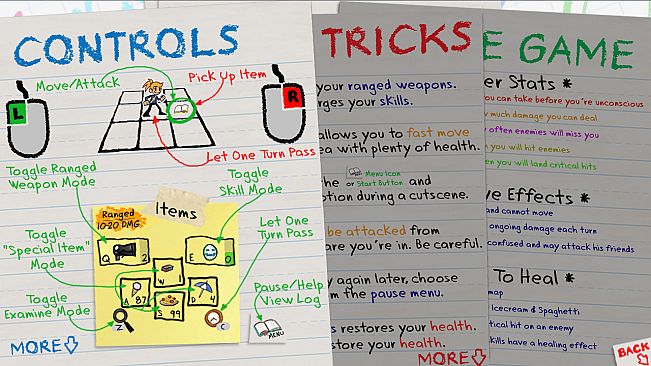 CONTROLS
Move/Attack
Pick Up Item
L
R
Let One Turn Pass
Toggle Ranged
Weapon Mode
Toggle
Skill Mode
Ranged
10-20 DMG.
Items
Toggle
"Special Item"
Mode
Let One
Turn Pass
Q 2
E 0
W 1
A 87
D 4
S 99
Toggle
Examine Mode
Z
C
Pause/Help
View Log
MENU
MORE
TRICKS
your ranged weapons.
rges your skills.
allows you to fast move
ea with plenty of health.
Menu Icon
he or Start Button and
otion during a cutscene.
be attacked from
are you're in. Be careful.
y again later, choose
m the pause menu.
s restores your health.
store your health.
MORE
E GAME
er Stats *
ou can take before you're unconscious
much damage you can deal
often enemies will miss you
you will hit enemies
n you will land critical hits
ve Effects *
and cannot move
ongoing damage each turn
confused and may attack his friends
To Heal *
map
Icecream & Spaghetti
tical hit on an enemy
skills have a healing effect
BACK